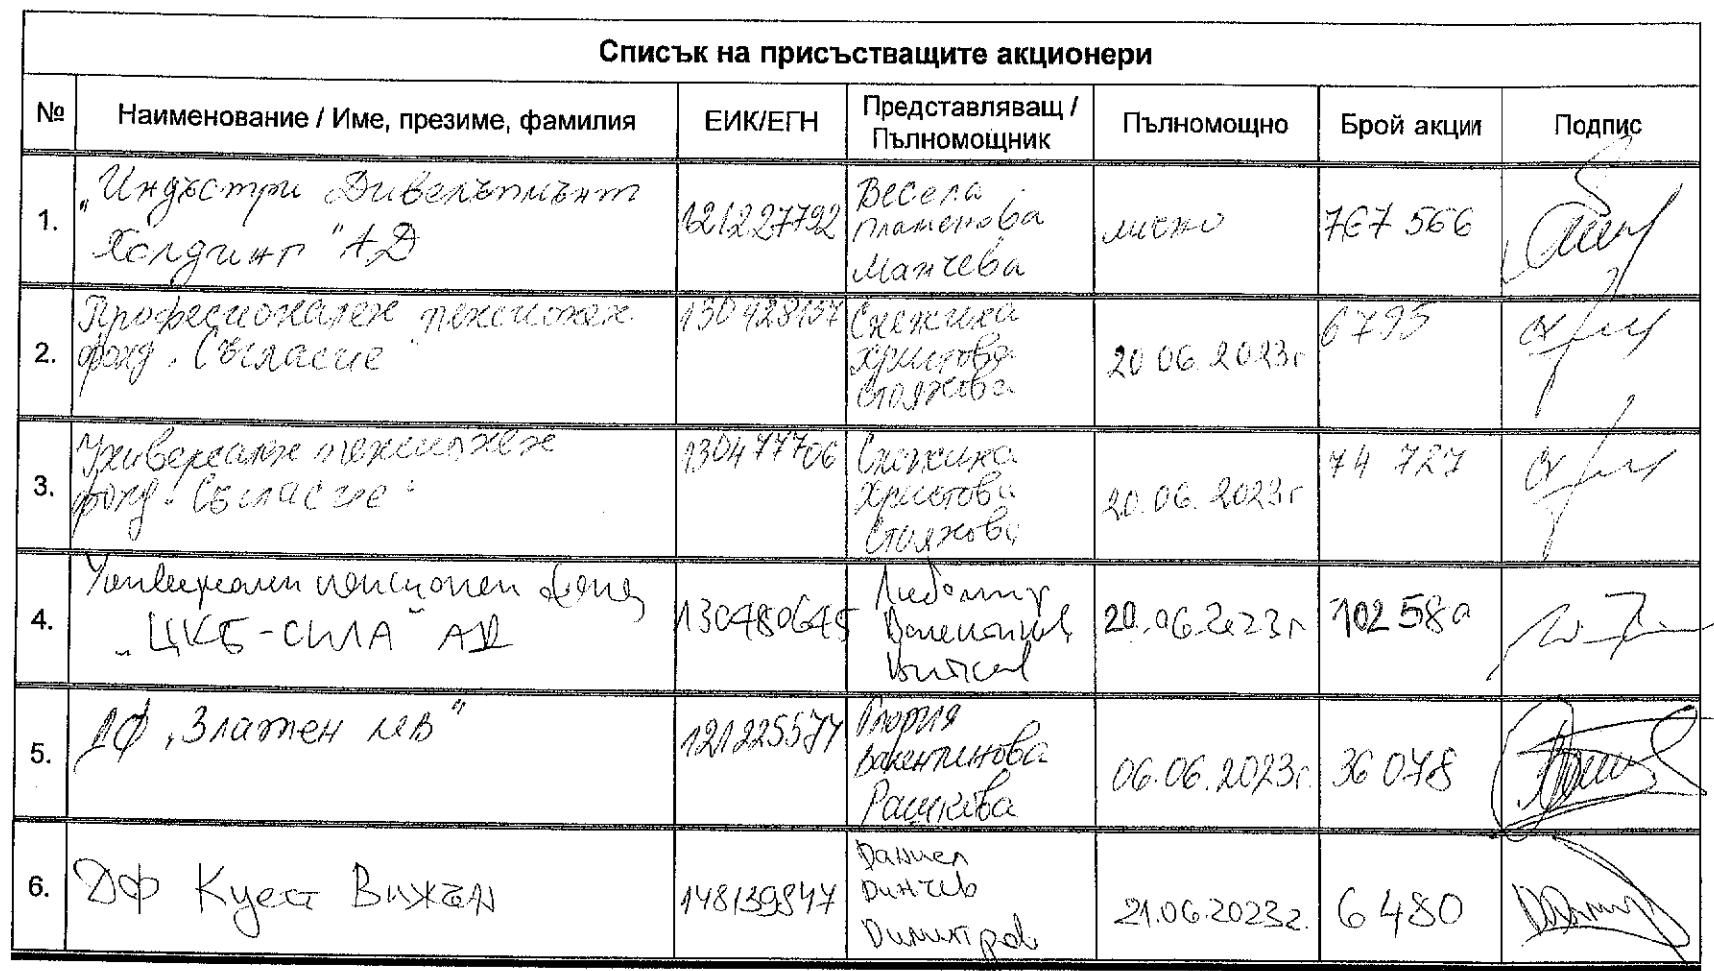 Списък на присъстващите акционери
№ Наименование / Име, презиме, фамилия ЕИК/ЕГН Представляващ / Пълномощник Пълномощно Брой акции Подпис
1. „Индъстри Дивелъпмънт Холдинг" АД 121227792 Весела Пламенова Манчева лично 767 566
2. Професионален пенсионен фонд „Съгласие" 130428157 Снежина Христова Стоянова 20.06.2023г 6795
3. Универсален пенсионен фонд „Съгласие" 130477706 Снежина Христова Стоянова 20.06.2023г 74 727
4. Универсален пенсионен фонд „ЦКБ-СИЛА" АД 130480645 Любомир Валентинов 20.06.2023г 102 580
5. ДФ „Златен лев" 121225577 Глория Валентинова Рашкова 06.06.2023г. 36 078
6. ДФ Куест Вижън 148139847 Даниел Динчев Димитров 21.06.2023г. 6 480